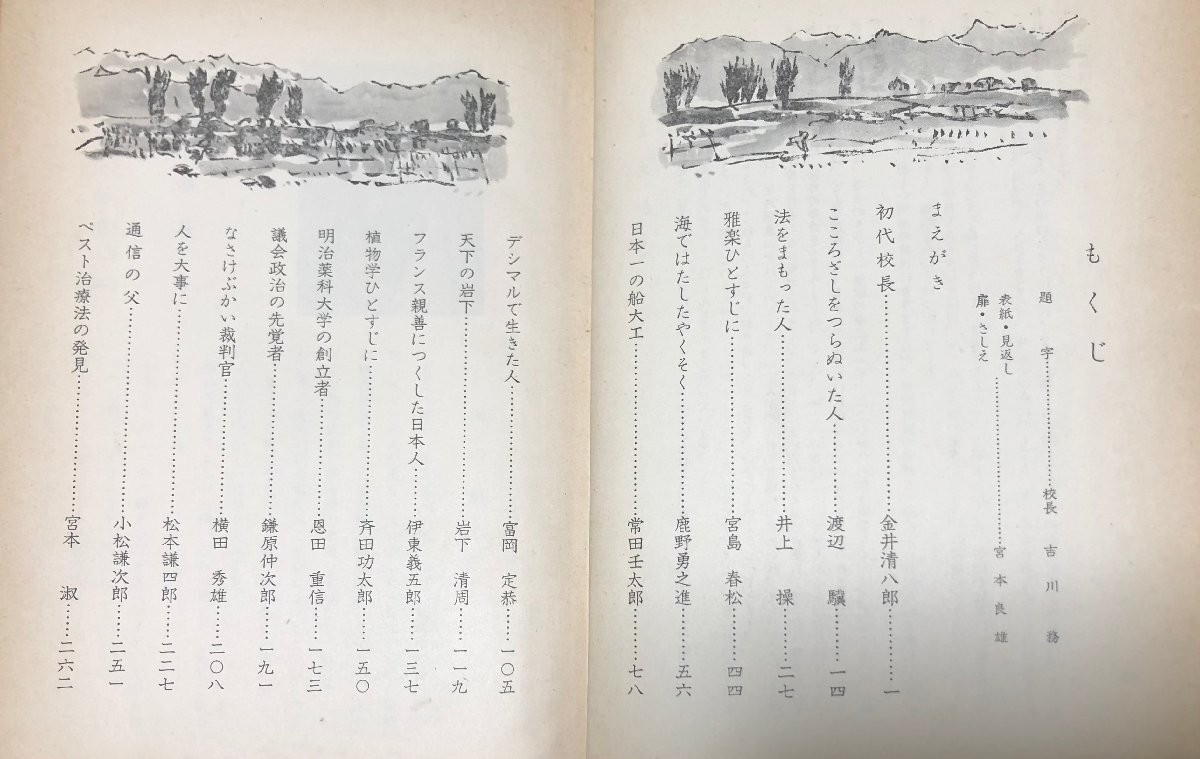 もくじ
題字……………校長 吉川務
表紙・見返し
扉・さしえ……………宮本良雄
まえがき
初代校長……………金井清八郎……………一
こころざしをつらぬいた人……………渡辺 驥……………一四
法をまもった人……………井上 操……………二七
雅楽ひとすじに……………宮島 春松……………四四
海ではたしたやくそく……………鹿野勇之進……………五六
日本一の船大工……………常田壬太郎……………七八
デシマルで生きた人……………富岡 定恭……………一〇五
天下の岩下……………岩下 清周……………一一九
フランス親善につくした日本人……………伊東義五郎……………一三七
植物学ひとすじに……………斉田功太郎……………一五〇
明治薬科大学の創立者……………恩田 重信……………一七三
議会政治の先覚者……………鎌原仲次郎……………一九一
なさけぶかい裁判官……………横田 秀雄……………二〇八
人を大事に……………松本謙四郎……………二二七
通信の父……………小松謙次郎……………二五一
ペスト治療法の発見……………宮本 淑……………二六二